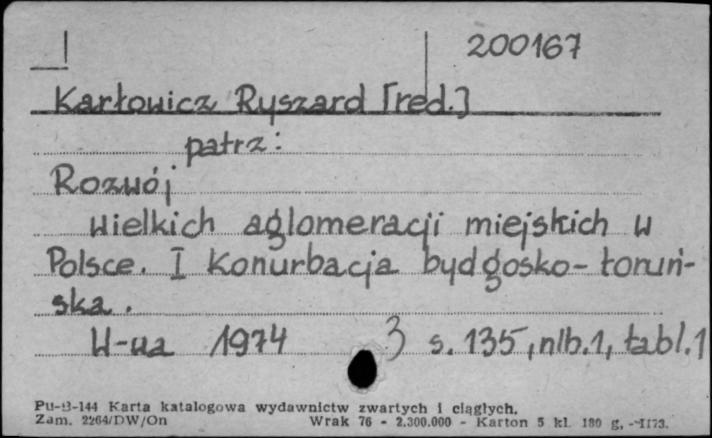 200167
Karłowicz Ryszard [red.]
patrz:
Rozwój
wielkich aglomeracji miejskich w
Polsce. I Konurbacja bydgosko-toruń-
ska.
W-wa 1974 3 s. 135, nlb.1, tabl.1
Pu-B-144 Karta katalogowa wydawnictw zwartych i ciągłych.
Zam. 2264/DW/On Wrak 76 - 2.300.000 - Karton 5 kl. 180 g,